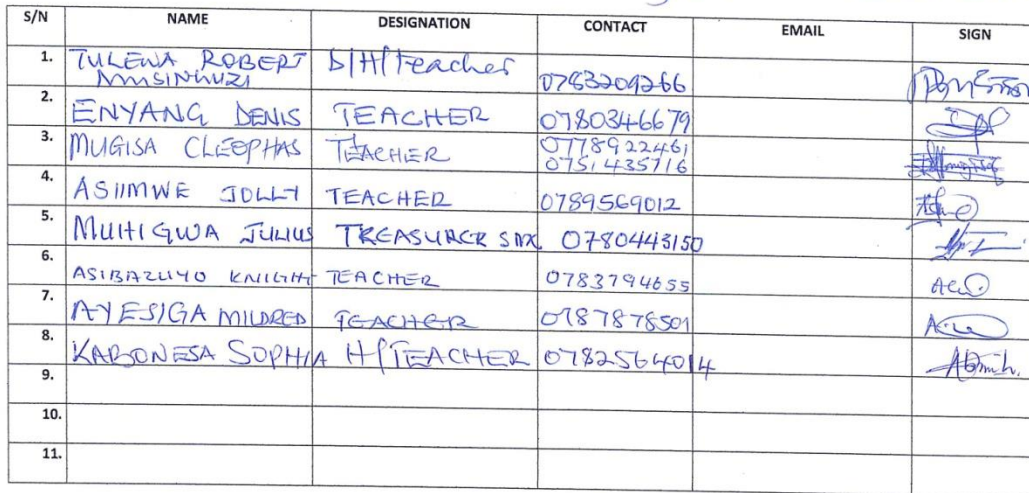 S/N NAME DESIGNATION CONTACT EMAIL SIGN
1. TULEWA ROBERT D/H/teacher 0783209266
2. ENYANG DENIS TEACHER 0780346679
3. MUGISA CLEOPHAS TEACHER 0778922461
0751435716
4. ASIIMWE JOLLY TEACHER 0789569012
5. MUHIGWA JULIUS TREASURER 0780443150
6. ASIBAZUYO KNIGHT TEACHER 0783794655
7. AYESIGA MILDRED TEACHER 0787878501
8. KABONESA SOPHIA H/TEACHER 0782564014
9.
10.
11.